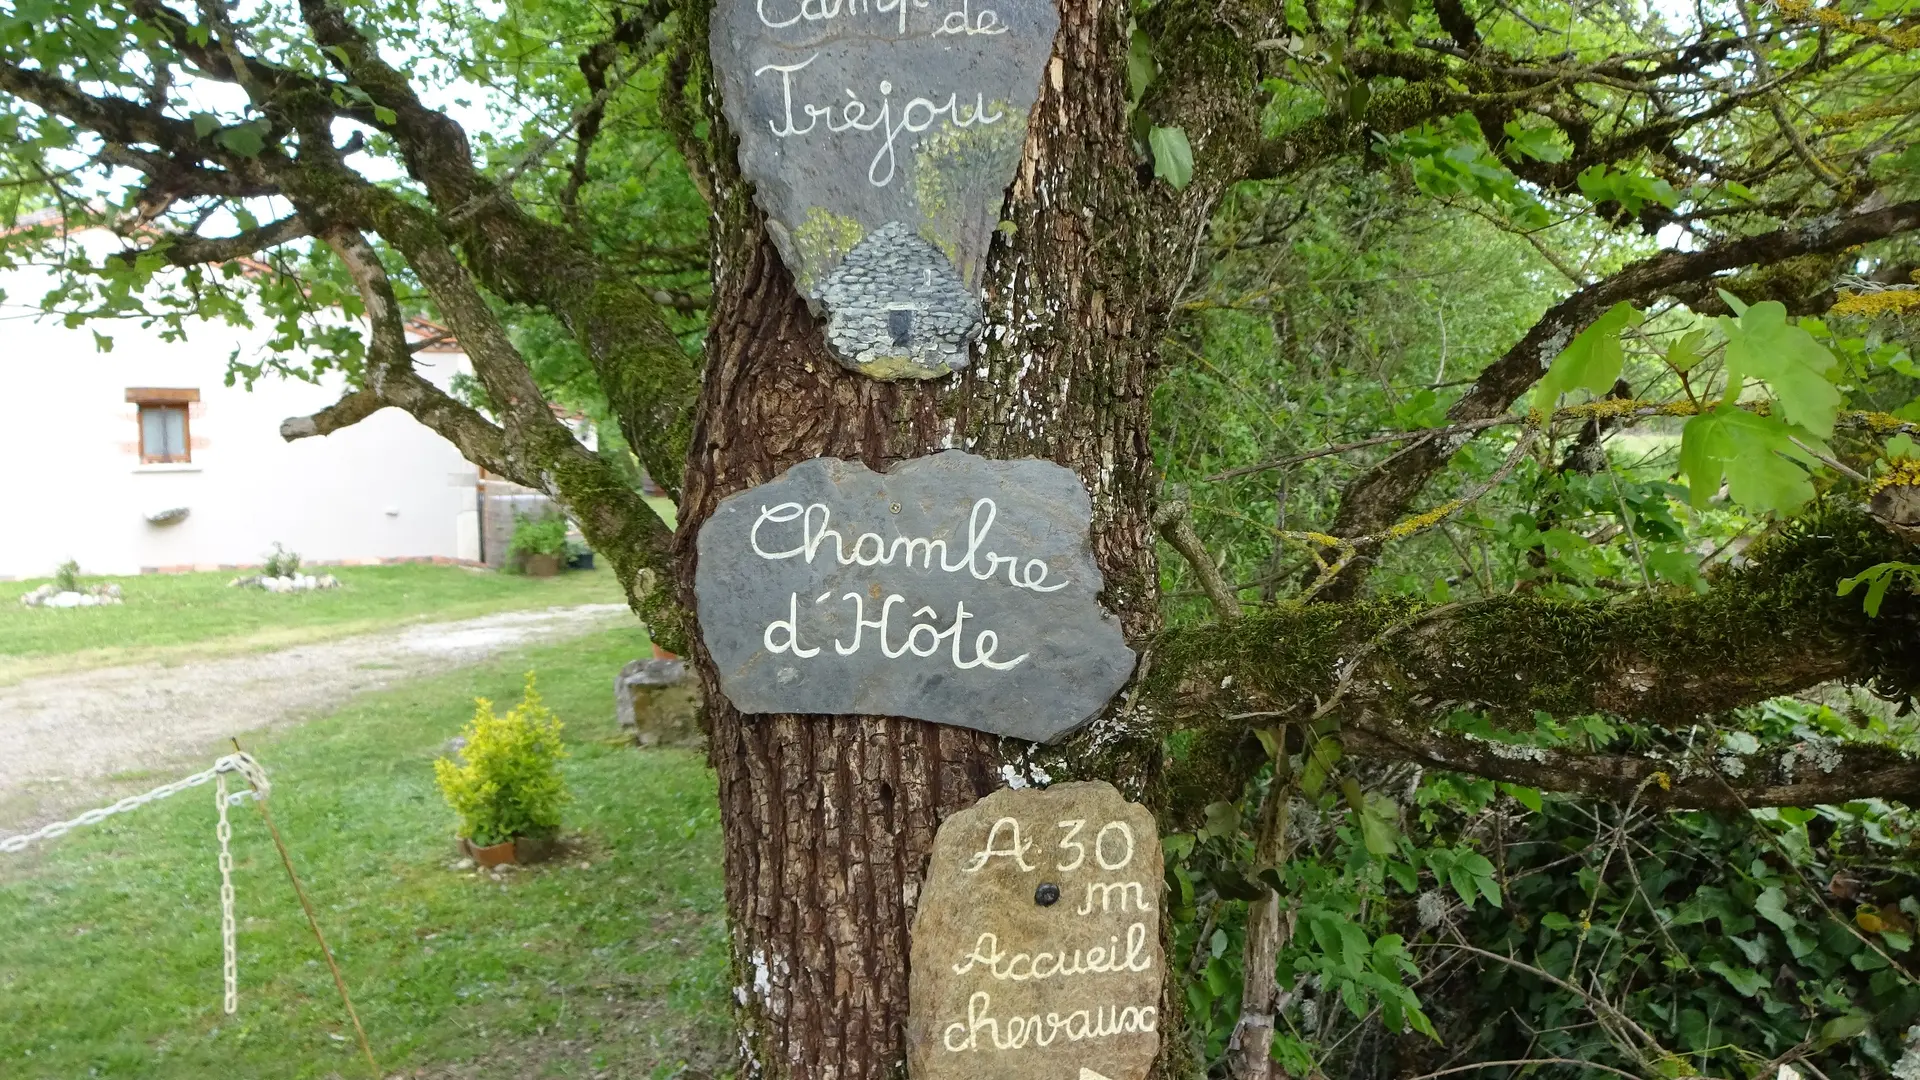 Camp de
Trèjou
Chambre
d'Hôte
A 30
m
Accueil
chevaux